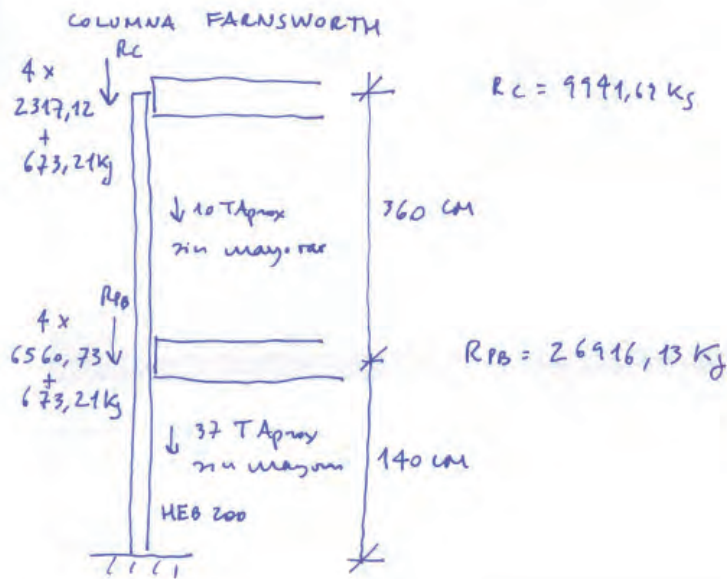 COLUMNA FARNSWORTH
Rc
4 x
2317,12
+
673,21Kg
Rc = 9941,69 Kg
↓ 10 TAprox
sin mayorar
360 cm
RPB
4 x
6560,73
+
673,21Kg
RPB = 26916,13 Kg
↓ 37 TAprox
sin mayorar
140 cm
HEB 200